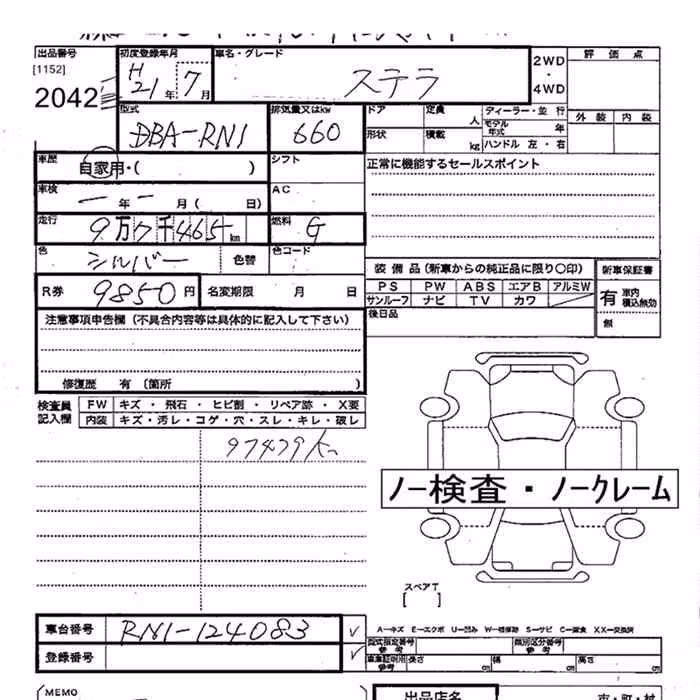 出品番号 初度登録年月 車名・グレード 2WD・4WD 評価点
[1152] 2042 H21年7月 ステラ
外装 内装
型式 排気量又はkw ドア 定員 人 ディーラー・並行
DBA-RN1 660 形状 積載 kg モデル年式 年
ハンドル 左・右
車歴 自家用・( ) シフト 正常に機能するセールスポイント
車検 ー年ー月(日) AC
走行 9万7千465km 燃料 G
色 シルバー 色替 色コード
装備品(新車からの純正品に限り○印) 新車保証書
R券 9850円 名変期限 月 日
PS PW ABS エアB アルミW 有 車内積込無効
サンルーフ ナビ TV カワ
後日品 無
注意事項申告欄(不具合内容等は具体的に記入して下さい)
修復歴 有〔箇所 〕
検査員記入欄 FW キズ・飛石・ヒビ割・リペア跡・X要
内装 キズ・汚レ・コゲ・穴・スレ・キレ・破レ
97479km
ノー検査・ノークレーム
スペアT
[ ]
車台番号 RN1-124083 ✓
A−キズ E−エクボ U−凹み W−補修跡 S−サビ C−腐食 XX−交換済
型式指定番号 参考 類別区分番号 参考
登録番号 ✓ 車車証明用参考 長さ cm 幅 cm 高さ cm
(MEMO 出品店名 市・町・村